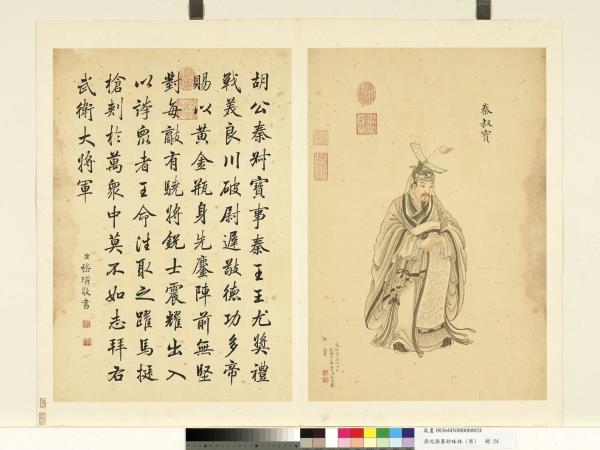 秦叔寶
胡公秦叔寶事秦王王尤奬禮
戰美良川破尉遲敬德功多帝
賜以黃金瓶身先鏖陣前無堅
對每敵有驍將銳士震耀出入
以誇眾者王命往取之躍馬挺
槍刺於萬眾中莫不如志拜右
武衛大將軍
臣嵇璜敬書
故畫 003644N000000024
墨妙珠林 冊 24